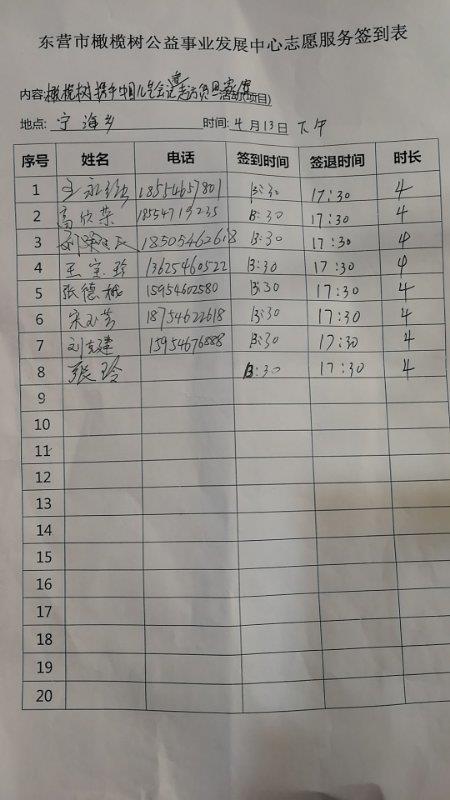 东营市橄榄树公益事业发展中心志愿服务签到表
内容:橄榄树携手中国儿 活动(项目)
地点: 宁海乡 时间: 4月13日 下午
序号 姓名 电话 签到时间 签退时间 时长
1 18554657801 13:30 17:30 4
2 高欣荣 18554719235 13:30 17:30 4
3 18505462618 13:30 17:30 4
4 王宝玲 13625460522 13:30 17:30 4
5 张德 15954602580 13:30 17:30 4
6 宋玉芳 18754622618 13:30 17:30 4
7 刘克建 15954676888 13:30 17:30 4
8 张玲 13:30 17:30 4
9
10
11
12
13
14
15
16
17
18
19
20